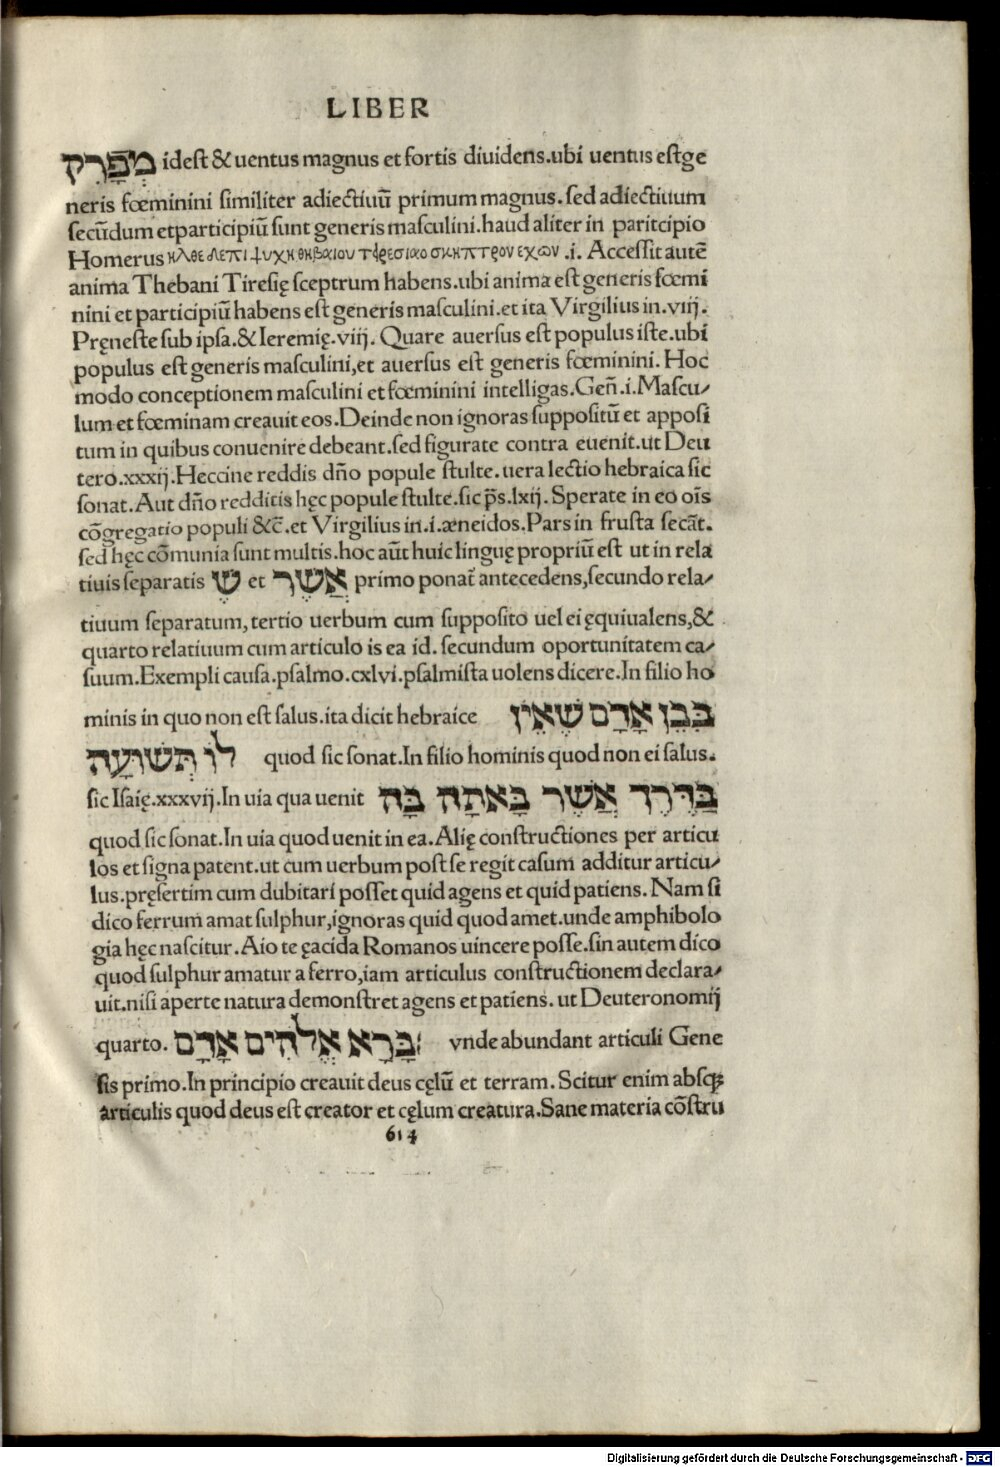 LIBER
מְפָרֵק idest & uentus magnus et fortis diuidens.ubi uentus estge
neris fœminini similiter adiectiuū primum magnus. sed adiectiuum
secūdum etparticipiū sunt generis masculini.haud aliter in paritcipio
Homerus ηλθε δεπι ψυχη θηβαιου τιρεσιαο σκηπτρον εχων .i. Accessit autē
anima Thebani Tiresię sceptrum habens.ubi anima est generis fœmi
nini et participiū habens est generis masculini.et ita Virgilius in.viij.
Pręneste sub ipsa.& Ieremię.viij. Quare auersus est populus iste.ubi
populus est generis masculini,et auersus est generis fœminini. Hoc
modo conceptionem masculini et fœminini intelligas.Gen̄.i.Mascu/
lum et fœminam creauit eos.Deinde non ignoras suppositū et apposi
tum in quibus conuenire debeant.sed figurate contra euenit.ut Deu
tero.xxxij.Heccine reddis dn̄o popule stulte.uera lectio hebraica sic
sonat.Aut dn̄o redditis hęc popule stulte.sic p̄s.lxij. Sperate in eo oīs
cōgregatio populi &c̄.et Virgilius in.i.æneidos.Pars in frusta secāt.
sed hęc cōmunia sunt multis.hoc aūt huic linguę propriū est ut in rela
tiuis separatis שֶׁ et אֲשֶׁר primo ponat̄ antecedens,secundo rela/
tiuum separatum,tertio uerbum cum supposito uel ei ęquiualens,&
quarto relatiuum cum articulo is ea id. secundum oportunitatem ca/
suum.Exempli causa.psalmo.cxlvi.psalmista uolens dicere.In filio ho
minis in quo non est salus.ita dicit hebraice בְּבֶן אָדָם שֶׁאֵין
לוֹ תְּשׁוּעָה quod sic sonat.In filio hominis quod non ei salus.
sic Isaię.xxxvij.In uia qua uenit בַּדֶּרֶךְ אֲשֶׁר בָּאתָה בָּה
quod sic sonat.In uia quod uenit in ea. Alię constructiones per articu
los et signa patent.ut cum uerbum post se regit casum additur articu/
lus.pręsertim cum dubitari posset quid agens et quid patiens. Nam si
dico ferrum amat sulphur,ignoras quid quod amet.unde amphibolo
gia hęc nascitur.Aio te ęacida Romanos uincere posse.sin autem dico
quod sulphur amatur a ferro,iam articulus constructionem declara/
uit.nisi aperte natura demonstret agens et patiens. ut Deuteronomij
quarto. בָּרָא אֱלֹהִים אָדָם: vnde abundant articuli Gene
sis primo.In principio creauit deus cęlū et terram. Scitur enim absqꝫ
articulis quod deus est creator et cęlum creatura.Sane materia cōstru
614
Digitalisierung gefördert durch die Deutsche Forschungsgemeinschaft - DFG